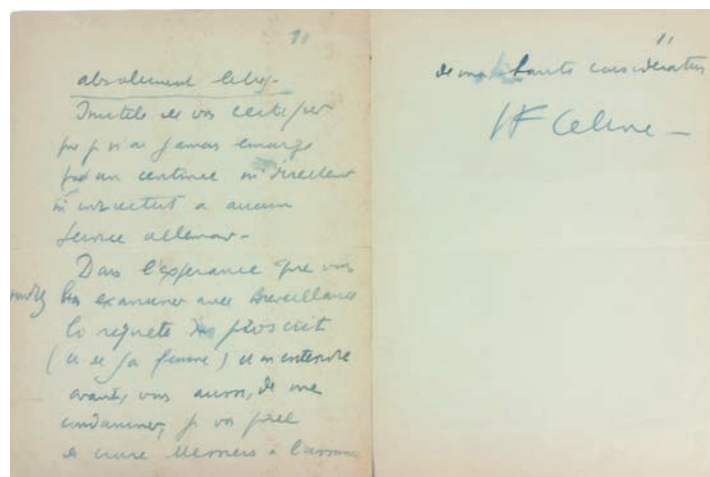 10
absolument libres.
Inutile de vos certifier
que je n'ai jamais émargé
pour un centime ni directement
ni indirectement a aucun
service allemand -
Dans l'espérance que vous
voudrez bien examiner avec Bienveillance
la requête du proscrit
(et de sa femme) et m'entendre
avant, vous aussi, de me
condamner, je vos prie
de croire Messieurs a l'assurance
11
de ma haute considération
LF Celine -